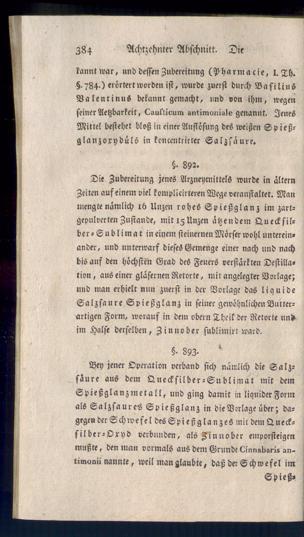 384 Achtzehnter Abschnitt. Die
kannt war, und dessen Zubereitung (Pharmacie, I. Th.
§. 784.) erörtert worden ist, wurde zuerst durch Basilius
Valentinus bekannt gemacht, und von ihm, wegen
seiner Aetzbarkeit, Causticum antimoniale genannt. Jenes
Mittel bestehet bloß in einer Auflösung des weißen Spieß-
glanzoxydüls in koncentrirter Salzsäure.
§. 892.
Die Zubereitung jenes Arzneymittels wurde in ältern
Zeiten auf einem viel komplicirteren Wege veranstaltet. Man
mengte nämlich 16 Unzen rohes Spießglanz im zart-
gepulverten Zustande, mit 15 Unzen ätzendem Quecksil-
ber-Sublimat in einem steinernen Mörser wohl unterein-
ander, und unterwarf dieses Gemenge einer nach und nach
bis auf den höchsten Grad des Feuers verstärkten Destilla-
tion, aus einer gläsernen Retorte, mit angelegter Vorlage;
und man erhielt nun zuerst in der Vorlage das liquide
Salzsaure Spießglanz in seiner gewöhnlichen Butter-
artigen Form, worauf in dem obern Theil der Retorte und
im Halse derselben, Zinnober sublimirt ward.
§. 893.
Bey jener Operation verband sich nämlich die Salz-
säure aus dem Quecksilber-Sublimat mit dem
Spießglanzmetall, und ging damit in liquider Form
als Salzsaures Spießglanz in die Vorlage über; da-
gegen der Schwefel des Spießglanzes mit dem Queck-
silber-Oxyd verbunden, als Zinnober emporsteigen
mußte, den man vormals aus dem Grunde Cinnabaris an-
timonii nannte, weil man glaubte, daß der Schwefel im
Spieß-